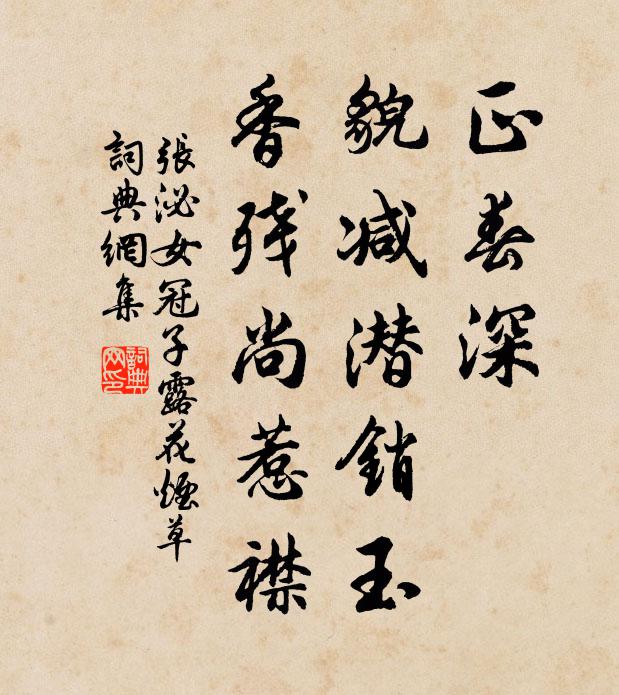 正春深
貌减潜銷玉
香残尚惹襟
張泌女冠子露花煙草
詞典網集
詞典网印